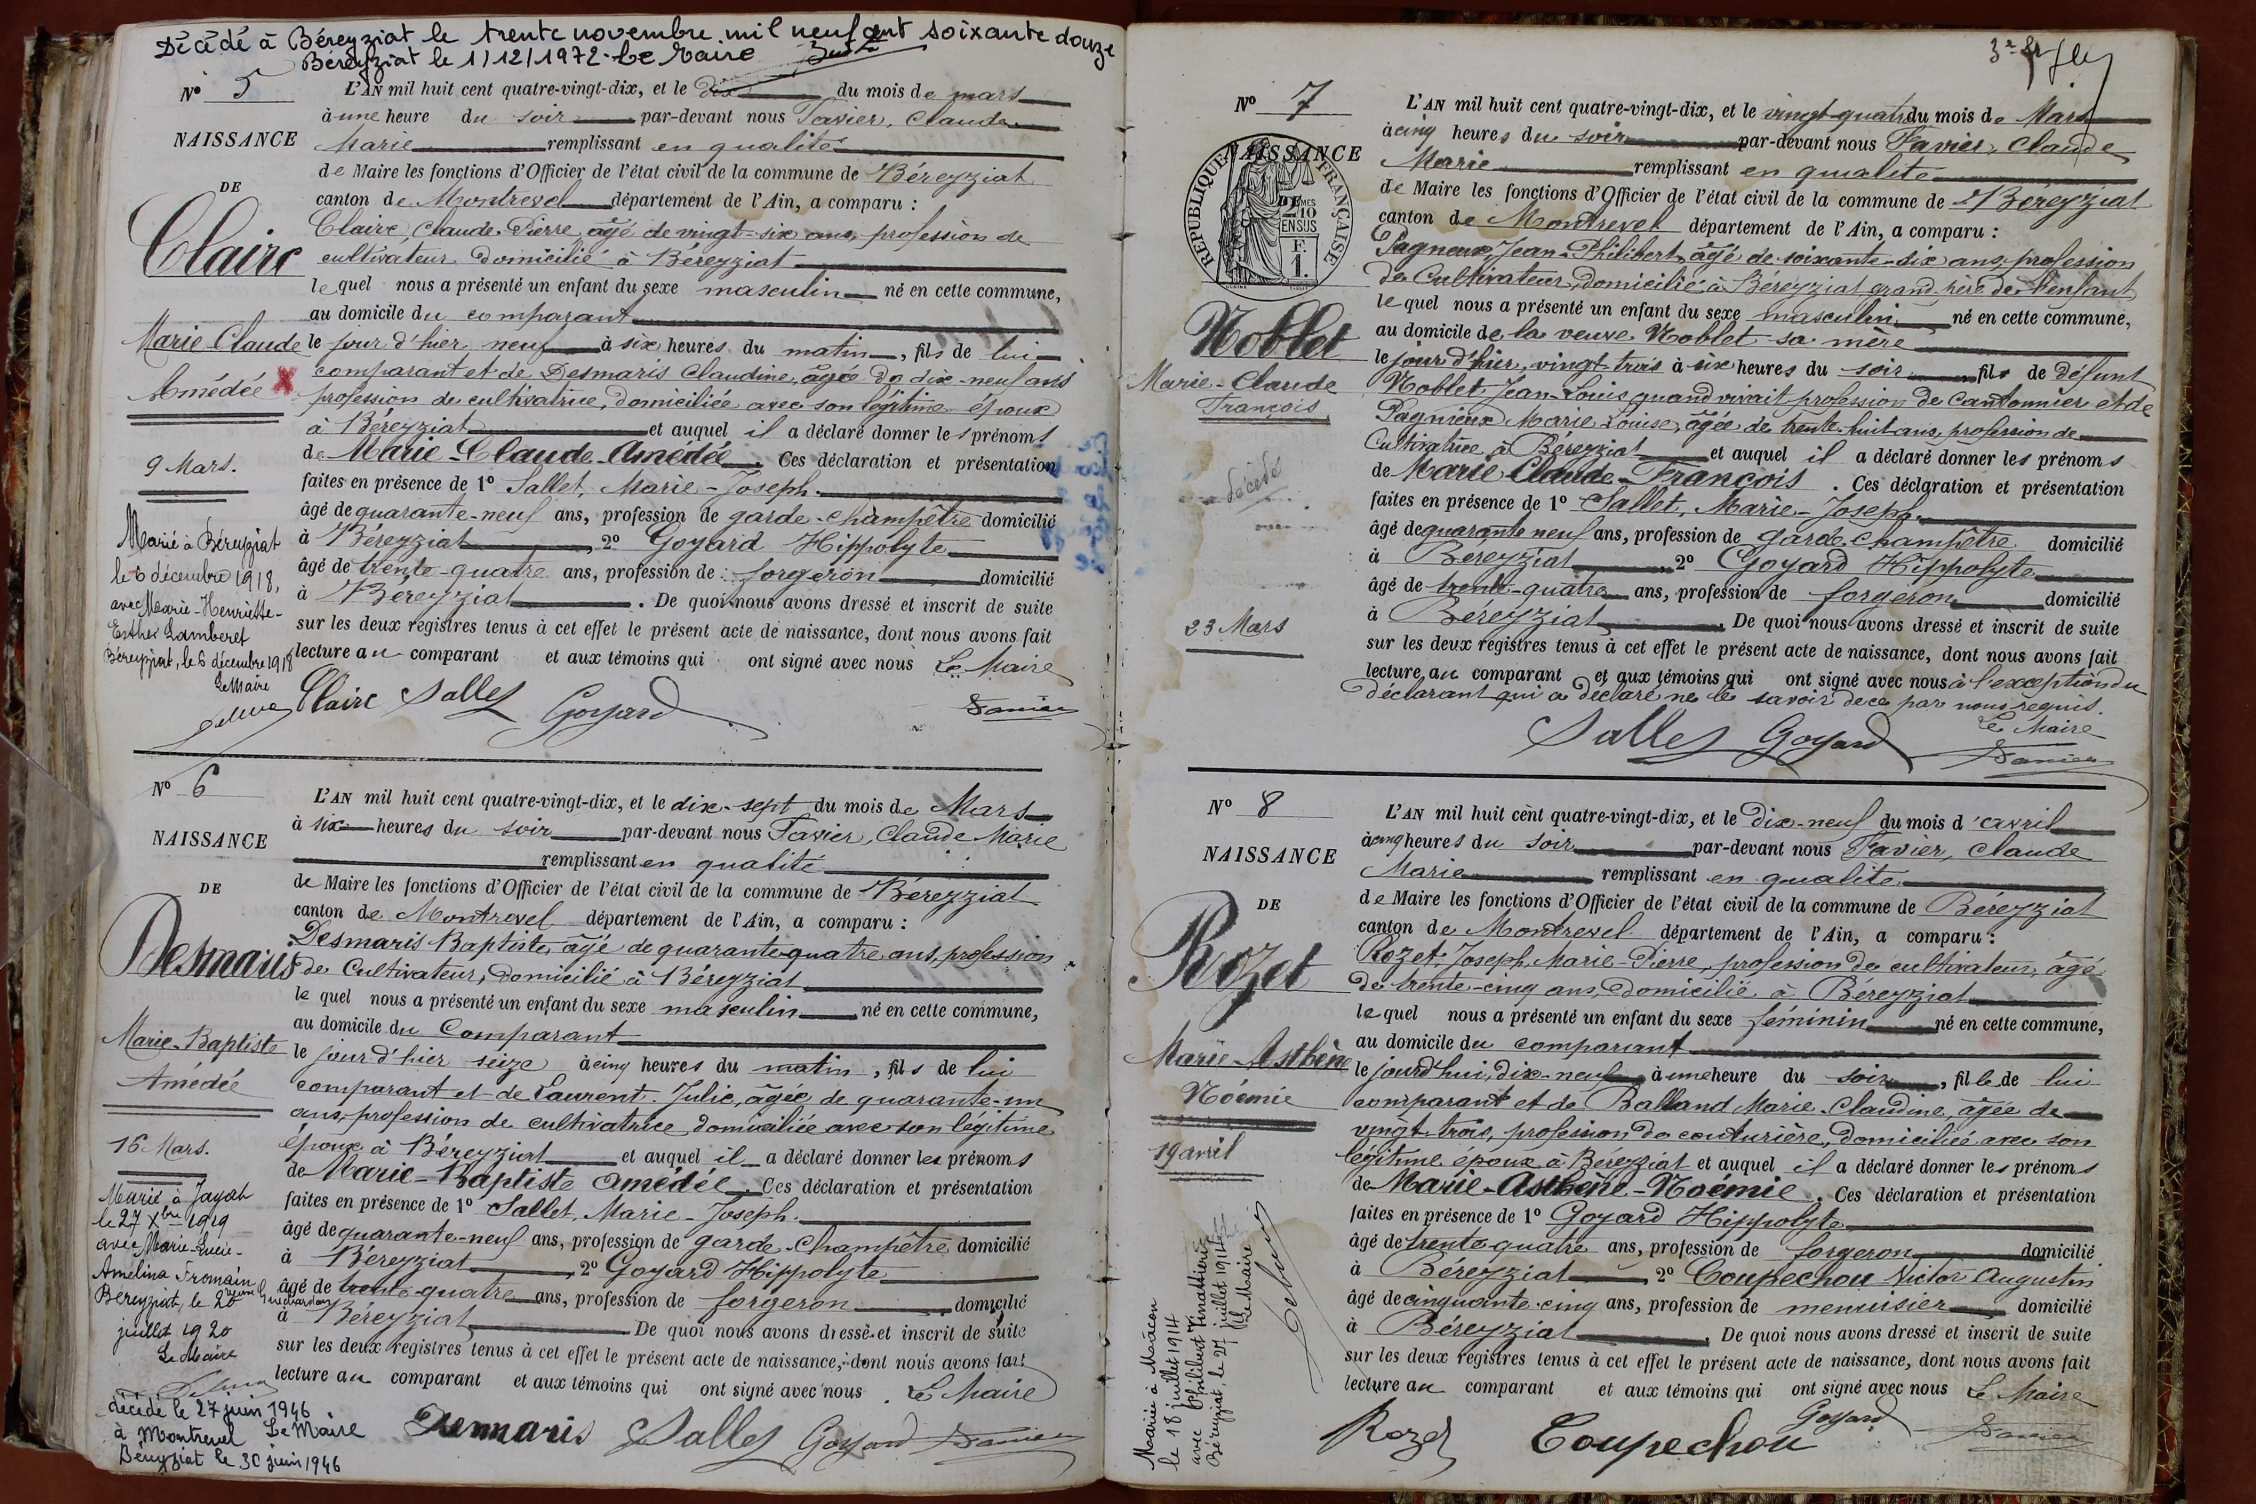 Décédé à Béreyziat le trente novembre mil neuf cent soixante douze
Béreyziat le 1/12/1972 - Le Maire
N° 5
NAISSANCE
DE
Claire
Marie-Claude
Amédée X
9 Mars.
Marié à Béreyziat
le 6 décembre 1918,
avec Marie-Henriette-
Esther Lamberet
Béreyziat, le 6 décembre 1918
Le Maire
L'AN mil huit cent quatre-vingt-dix, et le dix du mois de mars
à une heure du soir par-devant nous Favier, Claude
Marie remplissant en qualité
de Maire les fonctions d'Officier de l'état civil de la commune de Béreyziat
canton de Montrevel département de l'Ain, a comparu :
Claire, Claude-Pierre, âgé de vingt-six ans, profession de
cultivateur domicilié à Béreyziat
lequel nous a présenté un enfant du sexe masculin né en cette commune,
au domicile du comparant
le jour d'hier neuf à six heures du matin, fils de lui
comparant et de Desmaris Claudine, âgée de dix-neuf ans
profession de cultivatrice, domiciliée avec son légitime époux
à Béreyziat et auquel il a déclaré donner les prénoms
de Marie-Claude-Amédée. Ces déclaration et présentation
faites en présence de 1° Sallet, Marie-Joseph.
âgé de quarante-neuf ans, profession de garde-champêtre domicilié
à Béreyziat, 2° Goyard Hippolyte
âgé de trente-quatre ans, profession de forgeron domicilié
à Béreyziat. De quoi nous avons dressé et inscrit de suite
sur les deux registres tenus à cet effet le présent acte de naissance, dont nous avons fait
lecture au comparant et aux témoins qui ont signé avec nous Le Maire
Claire Sallet Goyard Favier
N° 6
NAISSANCE
DE
Desmaris
Marie-Baptiste
Amédée
16 Mars.
Marié à Jayat
le 27 Xbre 1919
avec Marie-Lucie-
Amélina Fromain
Béreyziat, le 20
juillet 1920
Le Maire
décédé le 27 juin 1946
à Montrevel Le Maire
Béreyziat le 30 juin 1946
L'AN mil huit cent quatre-vingt-dix, et le dix-sept du mois de Mars
à six heures du soir par-devant nous Favier, Claude Marie
remplissant en qualité
de Maire les fonctions d'Officier de l'état civil de la commune de Béreyziat
canton de Montrevel département de l'Ain, a comparu :
Desmaris Baptiste, âgé de quarante-quatre ans, profession
de Cultivateur, domicilié à Béreyziat
lequel nous a présenté un enfant du sexe masculin né en cette commune,
au domicile du Comparant
le jour d'hier seize à cinq heures du matin, fils de lui
comparant et de Laurent Julie, âgée de quarante-un
ans, profession de cultivatrice domiciliée avec son légitime
époux à Béreyziat et auquel il a déclaré donner les prénoms
de Marie-Baptiste Amédée. Ces déclaration et présentation
faites en présence de 1° Sallet, Marie-Joseph.
âgé de quarante-neuf ans, profession de garde-champêtre domicilié
à Béreyziat, 2° Goyard Hippolyte
âgé de trente-quatre ans, profession de forgeron domicilié
à Béreyziat De quoi nous avons dressé et inscrit de suite
sur les deux registres tenus à cet effet le présent acte de naissance, dont nous avons fait
lecture au comparant et aux témoins qui ont signé avec nous. Le Maire
Demaris Sallet Goyard Favier
N° 7
NAISSANCE
DE
RÉPUBLIQUE FRANÇAISE
2/10 MES
EN SUS
F.
1.
Noblet
Marie-Claude
François
décédé
23 Mars
L'AN mil huit cent quatre-vingt-dix, et le vingt-quatre du mois de Mars
à cinq heures du soir par-devant nous Favier, Claude
Marie remplissant en qualité
de Maire les fonctions d'Officier de l'état civil de la commune de Béreyziat
canton de Montrevel département de l'Ain, a comparu :
Pagneux, Jean-Philibert, âgé de soixante-six ans, profession
de Cultivateur, domicilié à Béreyziat grand-père de l'enfant
lequel nous a présenté un enfant du sexe masculin né en cette commune,
au domicile de la veuve Noblet sa mère
le jour d'hier, vingt-trois à six heures du soir, fils de défunt
Noblet, Jean-Louis quand vivait profession de Cantonnier et de
Pagnieux Marie Louise, âgée de trente-huit ans, profession de
Cultivatrice à Béreyziat et auquel il a déclaré donner les prénoms
de Marie Claude-François. Ces déclaration et présentation
faites en présence de 1° Sallet, Marie-Joseph.
âgé de quarante neuf ans, profession de garde-champêtre domicilié
à Béreyziat, 2° Goyard Hippolyte
âgé de trente-quatre ans, profession de forgeron domicilié
à Béreyziat. De quoi nous avons dressé et inscrit de suite
sur les deux registres tenus à cet effet le présent acte de naissance, dont nous avons fait
lecture au comparant et aux témoins qui ont signé avec nous à l'exception du
déclarant qui a déclaré ne le savoir de ce par nous requis.
Le Maire
Sallet Goyard Favier
N° 8
NAISSANCE
DE
Rozet
Marie-Asthène
Noémie
19 avril
Mariée à Mâcon
le 18 juillet 1914
avec Philibert
Béreyziat le 27 juillet 1914
Le Maire
L'AN mil huit cent quatre-vingt-dix, et le dix-neuf du mois d'avril
à cinq heures du soir par-devant nous Favier, Claude
Marie remplissant en qualité
de Maire les fonctions d'Officier de l'état civil de la commune de Béreyziat
canton de Montrevel département de l'Ain, a comparu :
Rozet, Joseph, Marie-Pierre, profession de cultivateur, âgé
de trente-cinq ans, domicilié à Béreyziat
lequel nous a présenté un enfant du sexe féminin né en cette commune,
au domicile du comparant
le jourd'hui, dix-neuf à une heure du soir, fille de lui
comparant et de Balland Marie-Claudine, âgée de
vingt-trois, profession de couturière, domiciliée avec son
légitime époux à Béreyziat et auquel il a déclaré donner les prénoms
de Marie-Asthène-Noémie. Ces déclaration et présentation
faites en présence de 1° Goyard Hippolyte
âgé de trente-quatre ans, profession de forgeron domicilié
à Béreyziat, 2° Coupechou Victor Augustin
âgé de cinquante-cinq ans, profession de menuisier domicilié
à Béreyziat. De quoi nous avons dressé et inscrit de suite
sur les deux registres tenus à cet effet le présent acte de naissance, dont nous avons fait
lecture au comparant et aux témoins qui ont signé avec nous Le Maire
Rozet Coupechou Goyard Favier